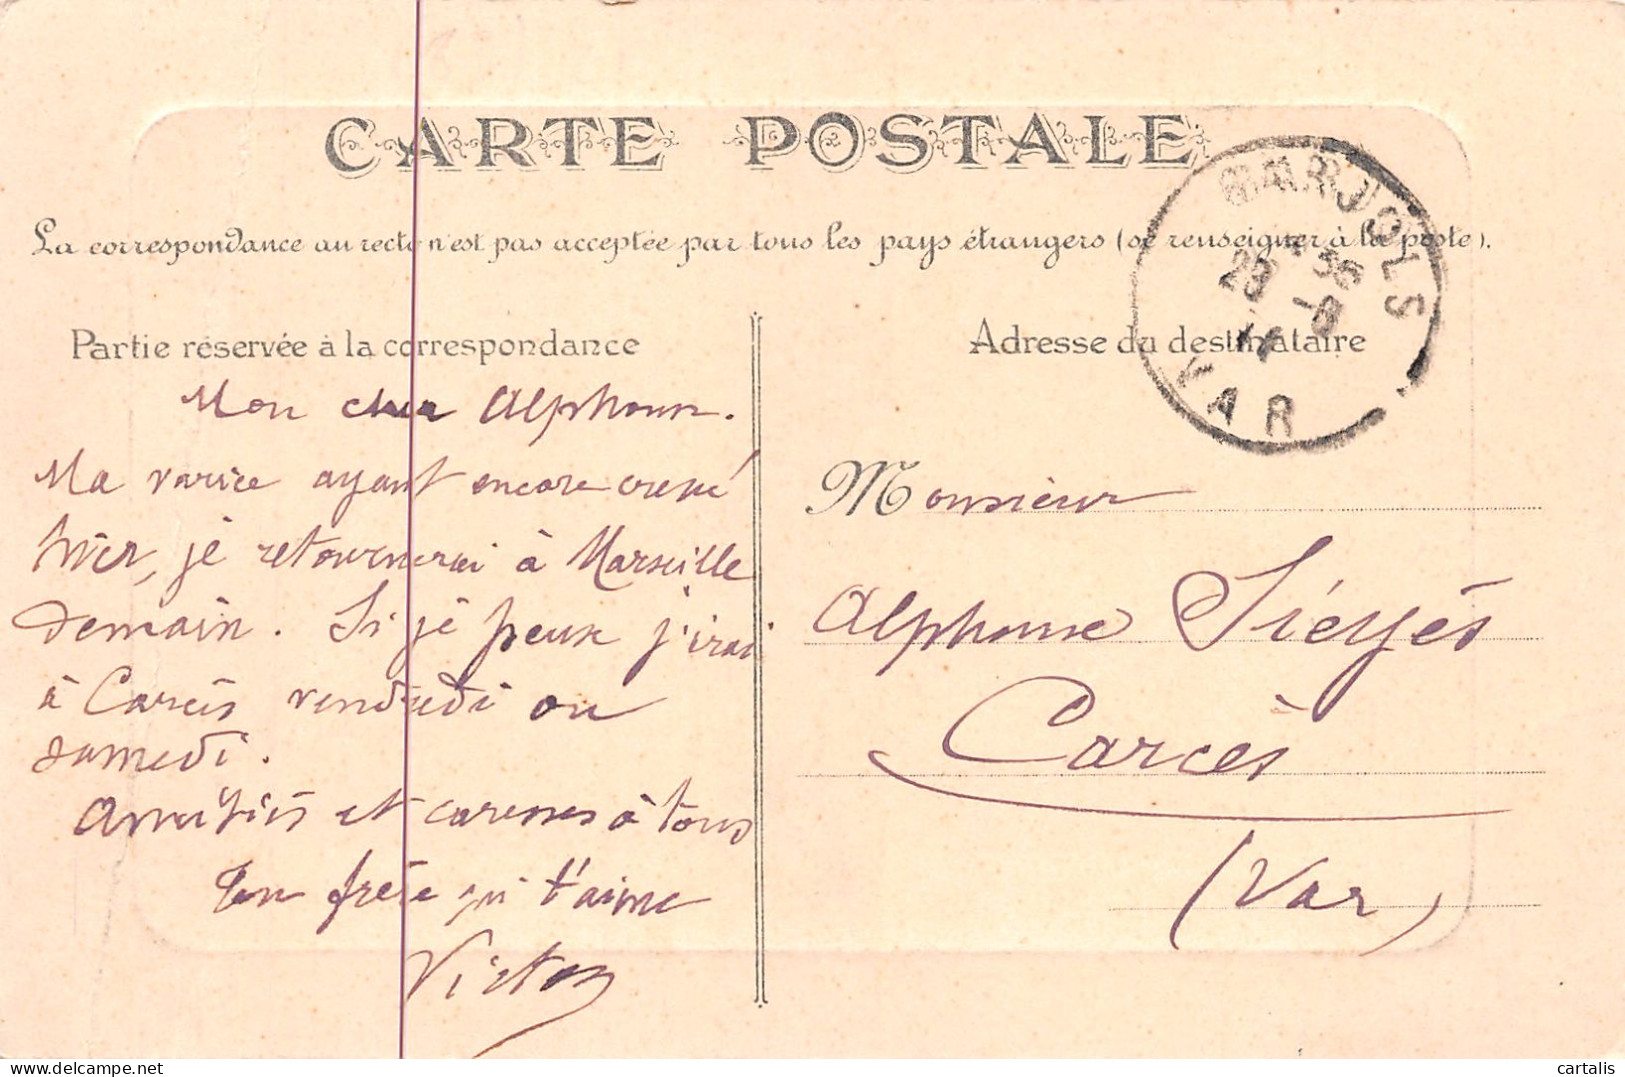 CARTE POSTALE
La correspondance au recto n'est pas acceptée par tous les pays étrangers (se renseigner à la poste).
Partie réservée à la correspondance
Mon cher Alphonse.
Ma varice ayant encore crevé
hier, je retournerai à Marseille
demain. Si je peux j'irai
à Carcès vendredi ou
samedi.
Amitiés et caresses à tous
Ton frère qui t'aime
Victor
Adresse du destinataire
Monsieur
Alphonse Sieyès
Carcès
(Var)
BARJOLS
VAR
cartalis